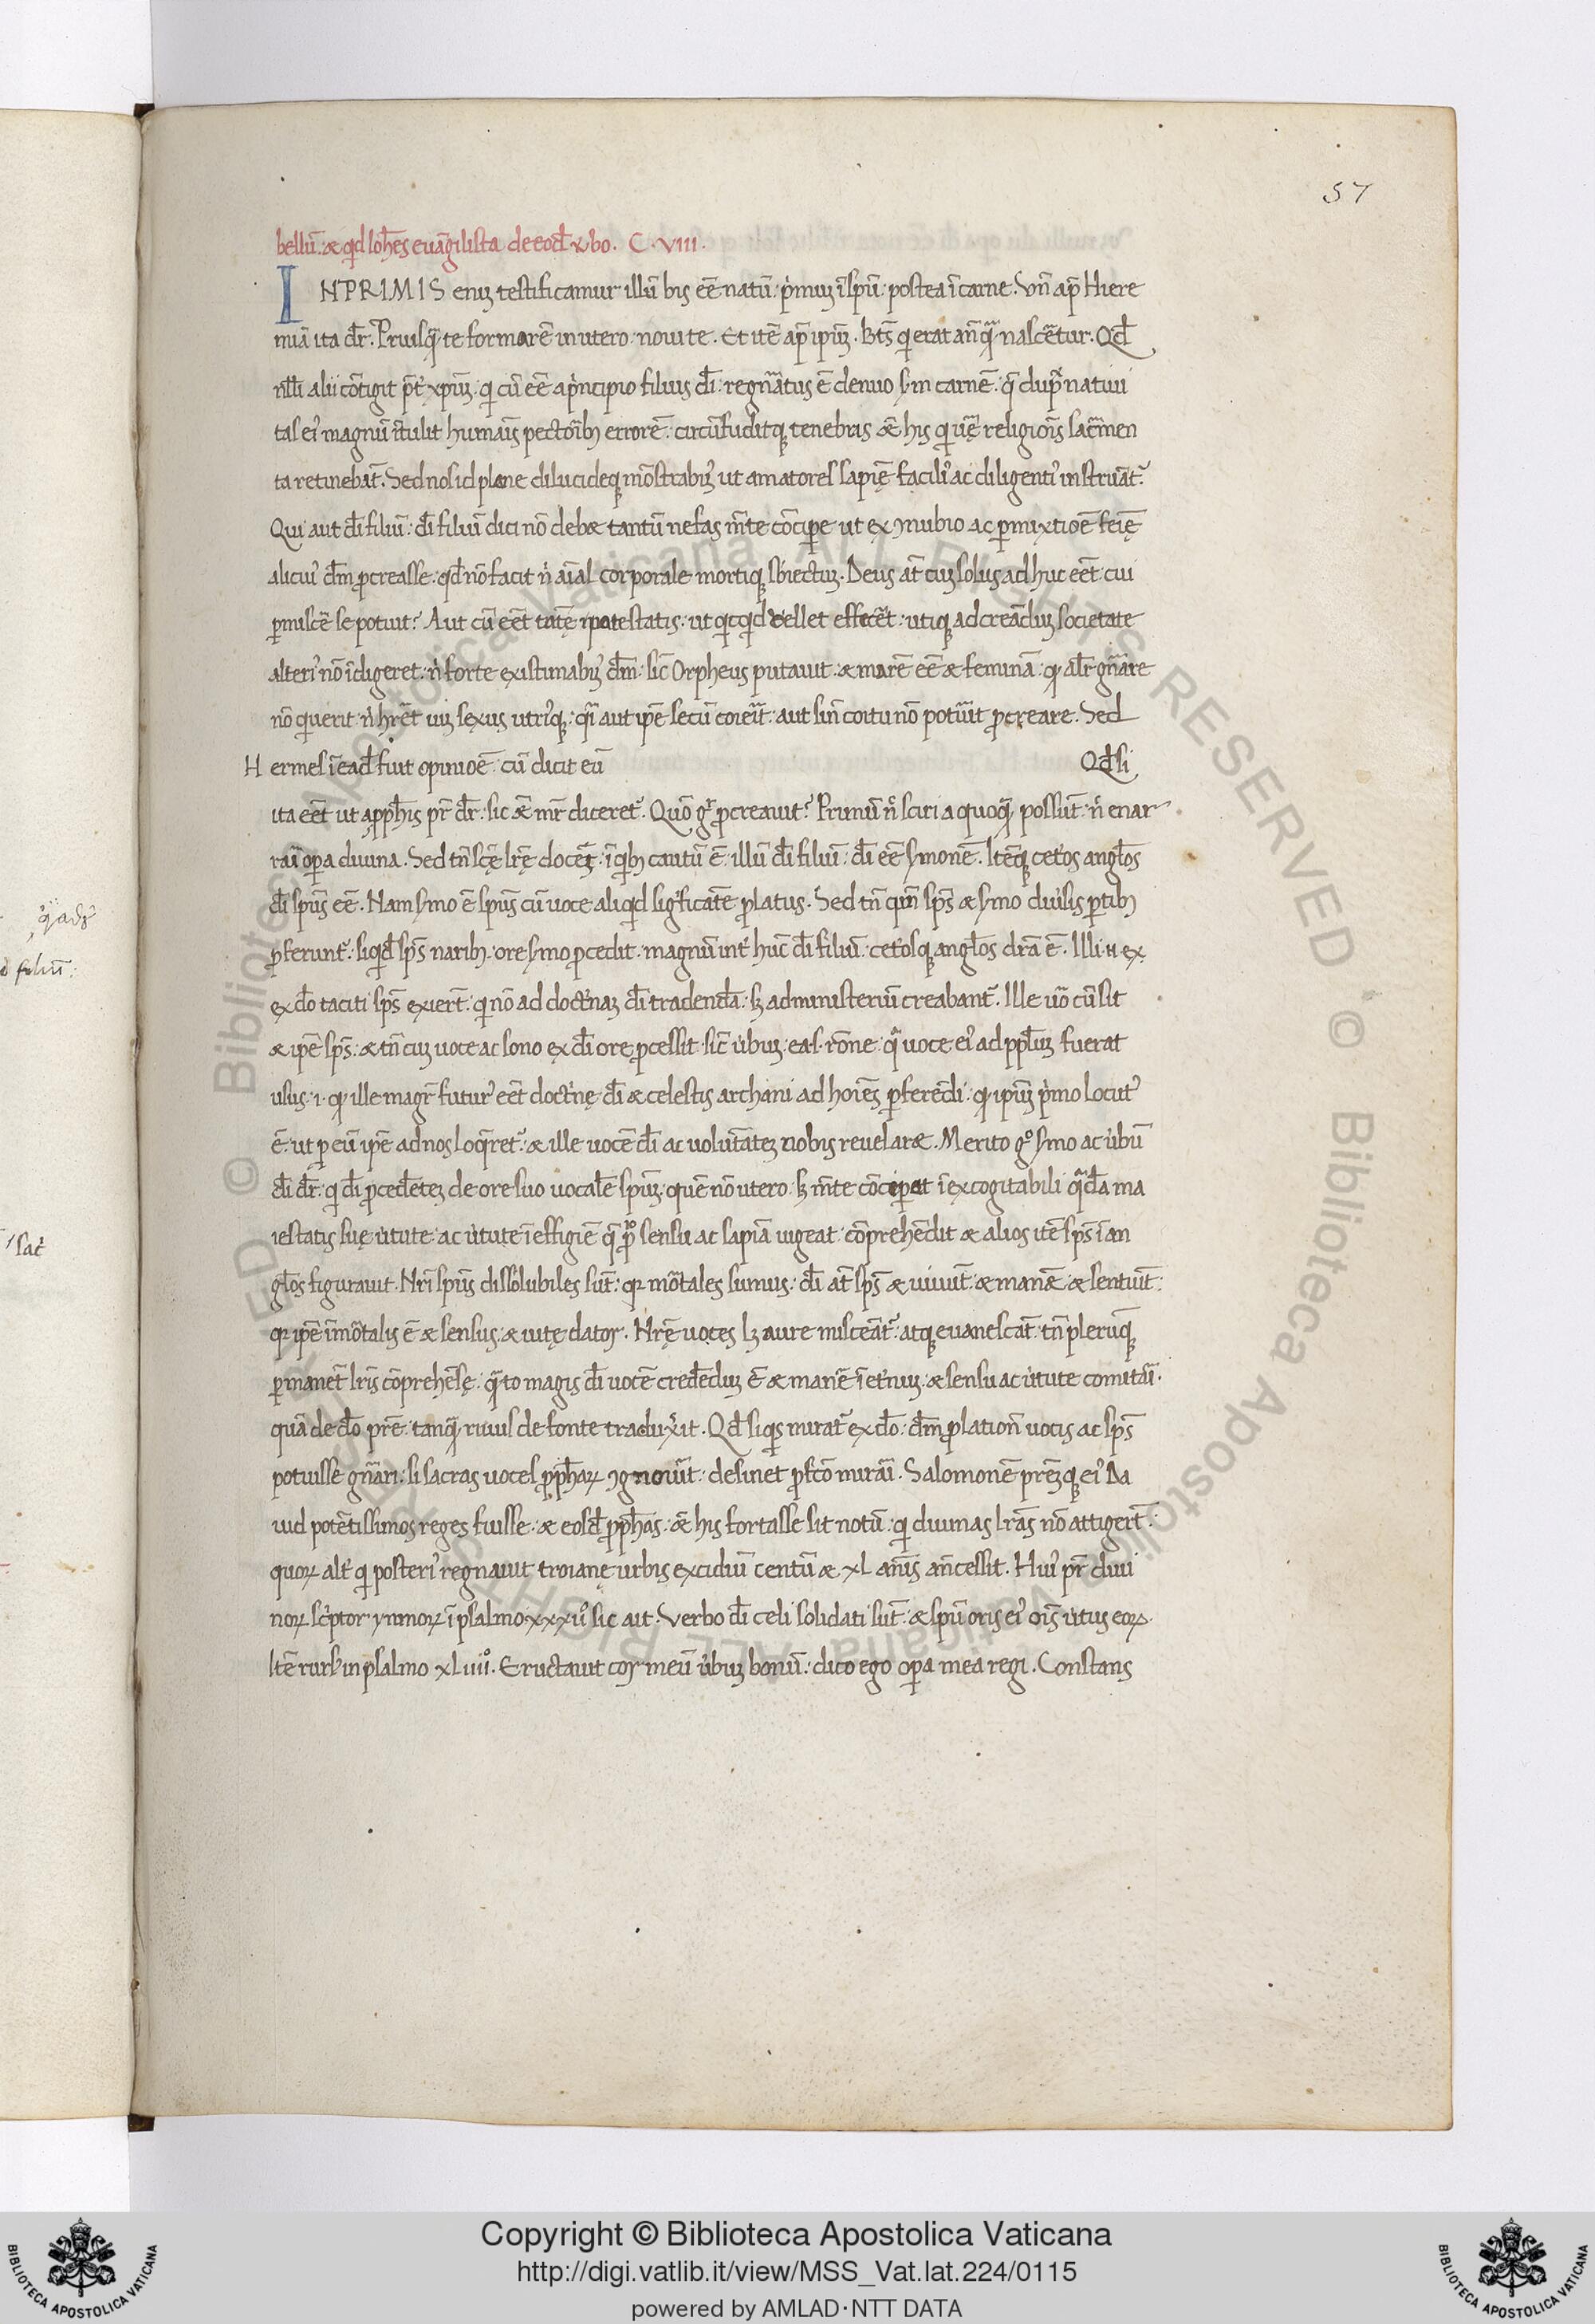 57
bellū. & qd Ioh̄es euāgilista de eod̄ ủbo. C. VIII.
INPRIMIS enim testificamur illū bis eē natū. pͥmuȝ ī spū. postea ī carne. Vn̄ ap̄ Hiere
miā ita dr̄. Priusq̄ te formarē in utero. noui te. Et itē ap̄ ipm̄. Bt̄s qui erat an̄ qͣ nascēt̄ur. Qd̄
nll̄i alii cōtigit p̄t xp̄m. qi cū eē a pͥncipio filius dī. regnātus ē denuo sm̄ carnē. q̄ dupl̄ natiui
tas eiꝰ magnū ītulit humaīs pectoribꝫ errorē. circūfuditqꝫ tenebris & his qi uerę religiōis sacͣmen
ta retinebāt. Sed nos id plane dilucideqꝫ mōstrabimꝰ ut amatores sapię faciliꝰ ac diligentiꝰ instruāt̄.
Qui aut dī filiū. dī filiū dici nō debet tantū nefas mēte cōcipere ut ex ꝯnubio ac ꝑmixtioē feīę
alicuiꝰ dm̄ ꝓcreasse. qd̄ nō facit nͥ aīal corporale mortiqꝫ sbiectum. Deus at̄ cum solus ad huc eēt. cui
ꝑmiscē se potuit? Aut cū eēt tātę potestatis. ut qicqid uellet efficēt. utiqꝫ ad creādum societate
alteriꝰ nō īdigeret. nͥ forte existimabimꝰ dm̄. sic̄ Orpheus putauit. & marē eē & feminā. qꝫ alr̄ gn̄are
nō qiuerit nͥ hr̄et uim sexus utriꝰqꝫ. qͣi aut ipē secū coierit. aut sin̄ coitu nō potuīt ꝓcreare. Sed
Hermes ī ead̄ fuit opinioē. cū dicit eū Qd̄ si
ita eēt ut a ꝓph̄is pr̄ dr̄. sic & mr̄ diceret̄. Quō gͦ ꝓcreauit? Primū nͦ sciri a quoqͣ possūt. nͥ enar
rari opa diuina. Sed tn̄ scę̄ lr̄ę docēt. ī qibꝫ cautū ē. illū dī filiū. dī eē sʼmonē. Itēqꝫ ceteros angl̄os
dī spūs eē. Nam sʼmo ē spūs cū uoce aliqid significāte ꝓlatus. Sed tn̄ qm̄ spūs & sʼmo diuʼsis ꝑtibꝫ
ꝓferunt̄. siqid̄ spūs naribꝫ. ore sʼmo ꝓcedit. magnū intʼ hūc dī filiū. ceterosqꝫ angl̄os dr̄a ē. Illi .n. ex
ex dō taciti spūs exiert̄. qi nō ad doctͥnam dī tradendā. sꝫ ad ministeriū creabant̄. Ille uō cū sit
& ipē spūs. & tn̄ cum uoce ac sono ex dī ore ꝓcessit. sic̄ ủbum. ea .s. rōne. qͣ uoce eiꝰ ad ppl̄um fuerat
usus. i. qꝫ ille magr̄ futurꝰ eēt doctͥnę dī & celestis archani ad hoīes ꝑferēdi. qꝫ ipm̄ pͥmo locutꝰ
ē. ut ꝑ eū ipē ad nos loqueret̄. & ille uocē dī ac uolūtatem nobis reuelaret. Merito gͦ sʼmo ac ủbū
dī dr̄. qͥ dī ꝓcedētem de ore suo uocalē spīum. quē nō utero. sꝫ mēte cōceperat īexcogitabili qͣdā ma
iestatis suę ủtute. ac ủtute ī effigiē q̄ ꝓͦ sensu ac sapiā uigeat. cōprehēdit & alios itē spūs ī an
gl̄os figurauit. Nr̄i spūs dissolubiles sūt. qꝛ mōtales sumus. dī at̄ spūs & uiuūt. & manēt & sentiūt.
qꝛ ipē īmōtalis ē & sensus. & uitę dator. Nr̄ę uoces lꝫ aure misceāt̄. atqꝫ euanescāt. tn̄ plerūqꝫ
ꝑmanēt lr̄is cōprehēsę. qͣto magis dī uocē credēdum ē & manē ī etʼnum. & sensu ac ủtute comitari.
quā de dō prē. tanqͣ riuus de fonte traduxʼit. Qd̄ siqis mirat̄ ex dō. dm̄ ꝓlatiōn̄ uocis ac spūs
potuisse gn̄ari. si sacras uoces ꝓph̄arꝝ ꝯgnouīt. desinet ꝓfc̄o mirari. Salomonē prēmqꝫ eiꝰ Da
uid potētissimos reges fuisse. & eosd̄ ꝓph̄as. & his fortasse sit notū. qi diuinas lr̄as nō attigert̄.
quorꝝ altʼ qi posteriꝰ regnauit troianę urbis excidiū centū & XL annis ancessit. Huiꝰ pr̄ diui
norꝝ scͥptor ymnorꝝ ī psalmo XXXIIͦ. sic ait. Verbo dī celi solidati sūt. & spū oris eiꝰ oīs ủtus eorꝝ.
Itē rursꝰ in psalmo XLIIIIͦ. Eructauit cor meū ủbum bonū. dico ego opa mea regi. Constans
Copyright © Biblioteca Apostolica Vaticana
http://digi.vatlib.it/view/MSS_Vat.lat.224/0115
powered by AMLAD·NTT DATA